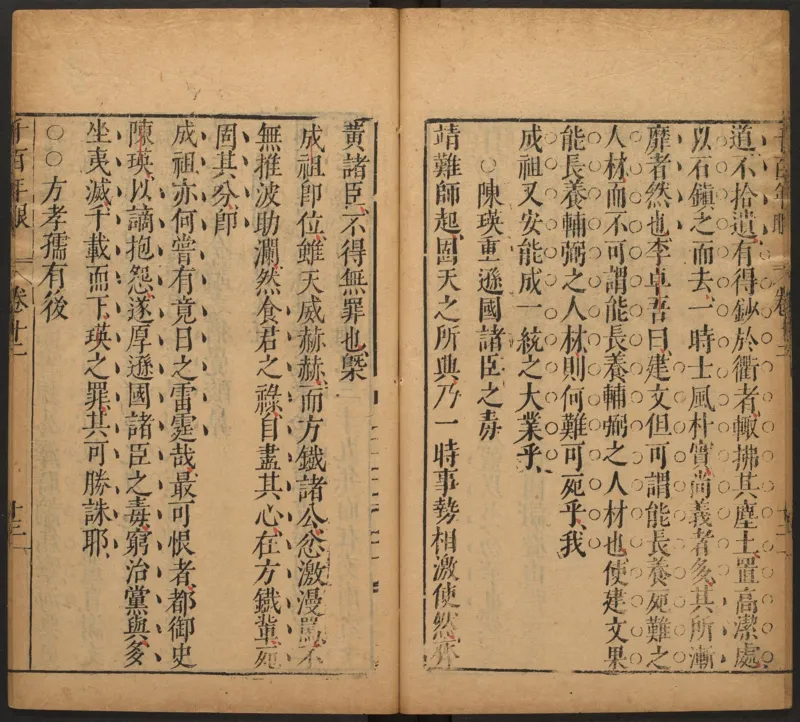 道不拾遺有得鈔於衢者輙拂其塵土置高潔處
以石鎮之而去一時士風朴實尚義者多其所漸
靡者然也李卓吾曰建文但可謂能長養死難之
人材而不可謂能長養輔弼之人材也使建文果
能長養輔弼之人材則何難可死乎我
成祖又安能成一統之大業乎
○陳瑛重遜國諸臣之毒
靖難師起固天之所興乃一時事勢相激使然亦
黃諸臣不得無罪也槩
成祖卽位雖天威赫赫而方鐵諸公忿激漫罵不
無推波助瀾然食君之祿自盡其心在方鐵輩死
固其分卽
成祖亦何嘗有竟日之雷霆哉最可恨者都御史
陳瑛以謫抱怨遂厚遜國諸臣之毒窮治黨與多
坐夷滅千載而下瑛之罪其可勝誅耶
○○方孝孺有後
千百年眼 卷十二 十三